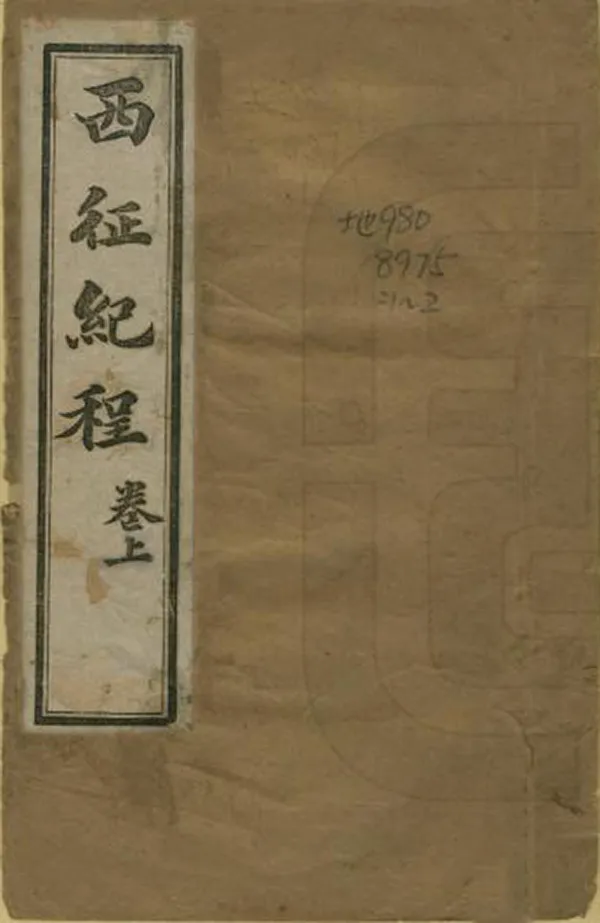 西征紀程
卷上
地980
8975